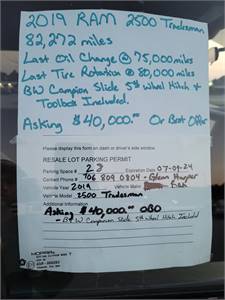 2019 RAM 2500 Tradesman
82,272 miles
Last Oil Change @ 75,000 miles
Last Tire Rotation @ 80,000 miles
BW Campion Slide 5th Wheel Hitch &
Toolbox Included.
Asking $40,000.00 Or Best Offer
Please display this form on dash or driver's side window.
RESALE LOT PARKING PERMIT
Parking Space # 23 Expiration Date 07-04-24
Contact Phone 706 809 0304 - Glenn Harper
Vehicle Year 2019 Vehicle Make Ram
Vehicle Model 2500 Tradesman
Additional Information
Asking $40,000.00 OBO
- B+W Companion Slide 5th Wheel Hitch Included